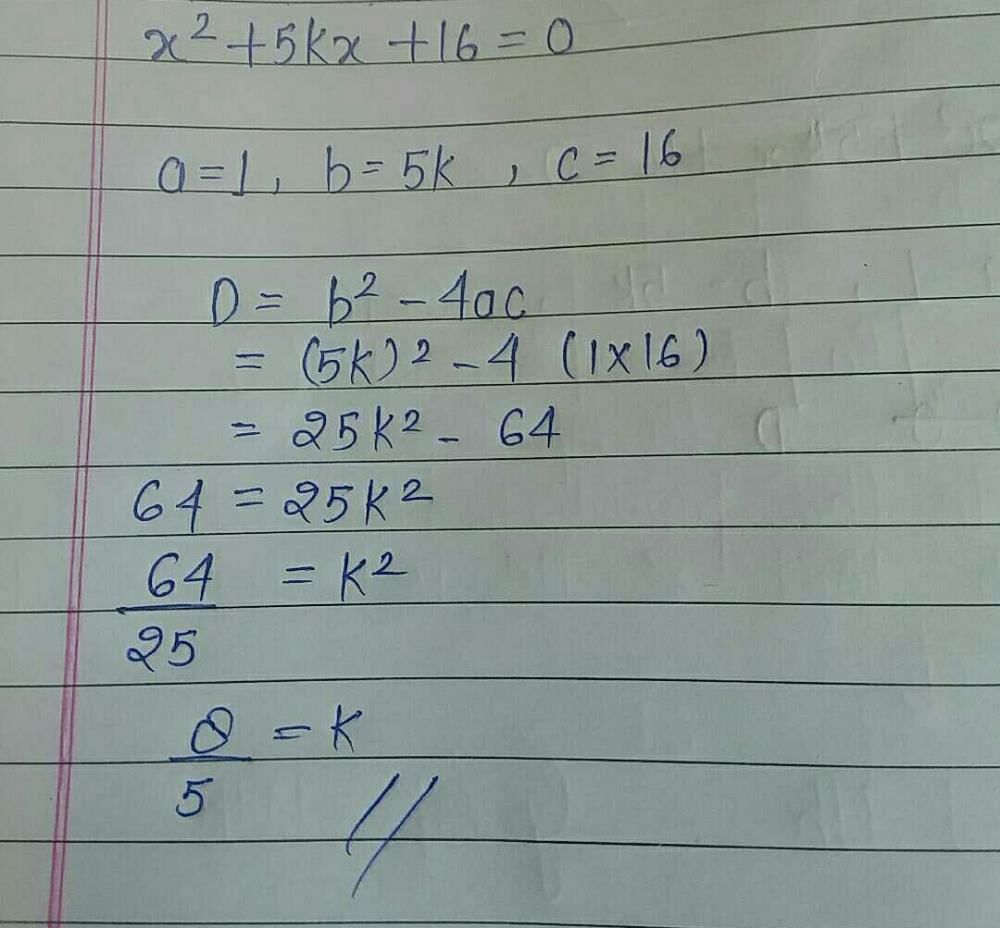 x² + 5kx + 16 = 0
a = 1, b = 5k , c = 16
D = b² - 4ac
= (5k)² - 4 (1 x 16)
= 25k² - 64
64 = 25k²
64/25 = k²
8/5 = k //